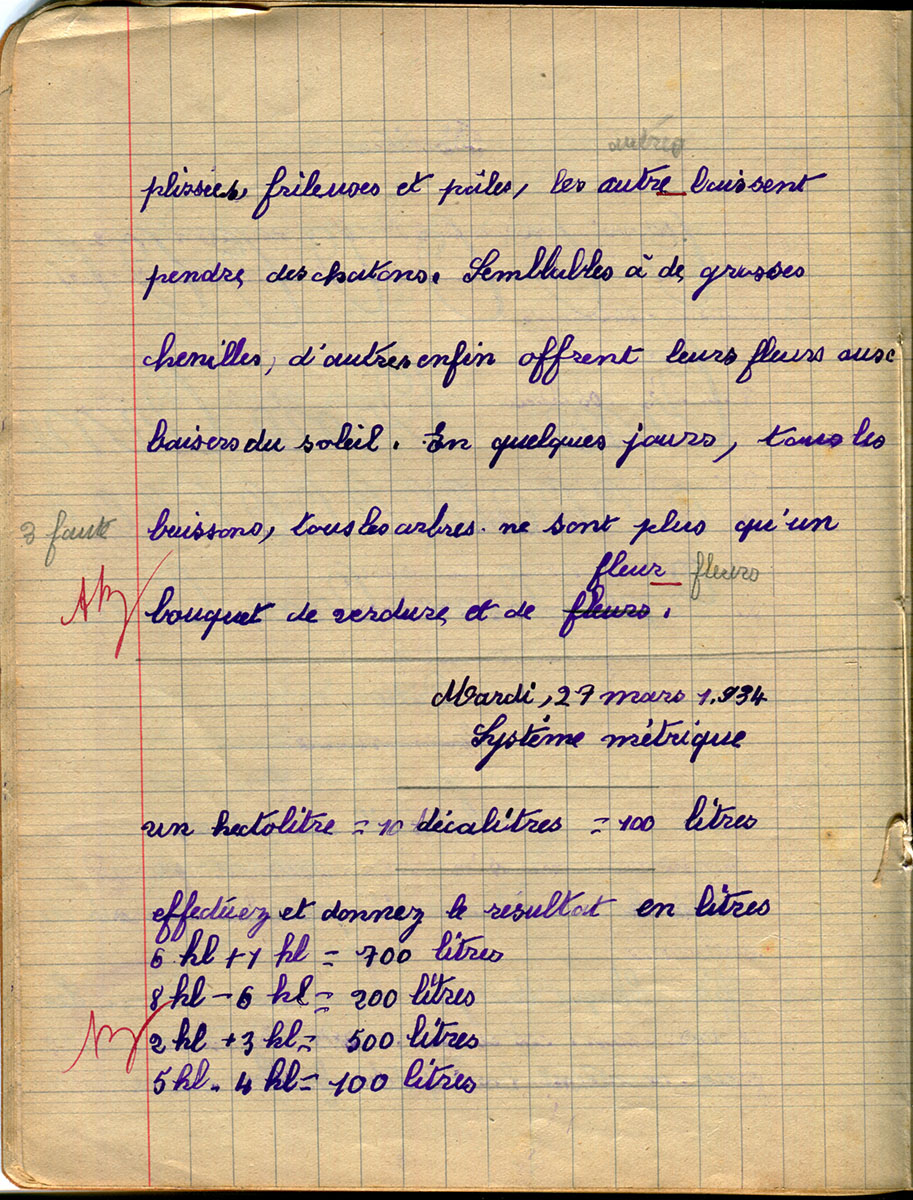 autres
plissées, frileuses et pâles, les autre laissent
pendre des chatons. Semblables à de grosses
chenilles, d'autres enfin offrent leurs fleurs aux
baisers du soleil. En quelques jours, tous les
3 faute buissons, tous les arbres. ne sont plus qu'un
fleur fleurs
bouquet de verdure et de fleurs.
Mardi, 27 mars 1.934
Système métrique
un hectolitre = 10 décalitres = 100 litres
effectuez et donnez le résultat en litres
6 hl + 1 hl = 700 litres
8 hl - 6 hl = 200 litres
2 hl + 3 hl = 500 litres
5 hl - 4 hl = 100 litres